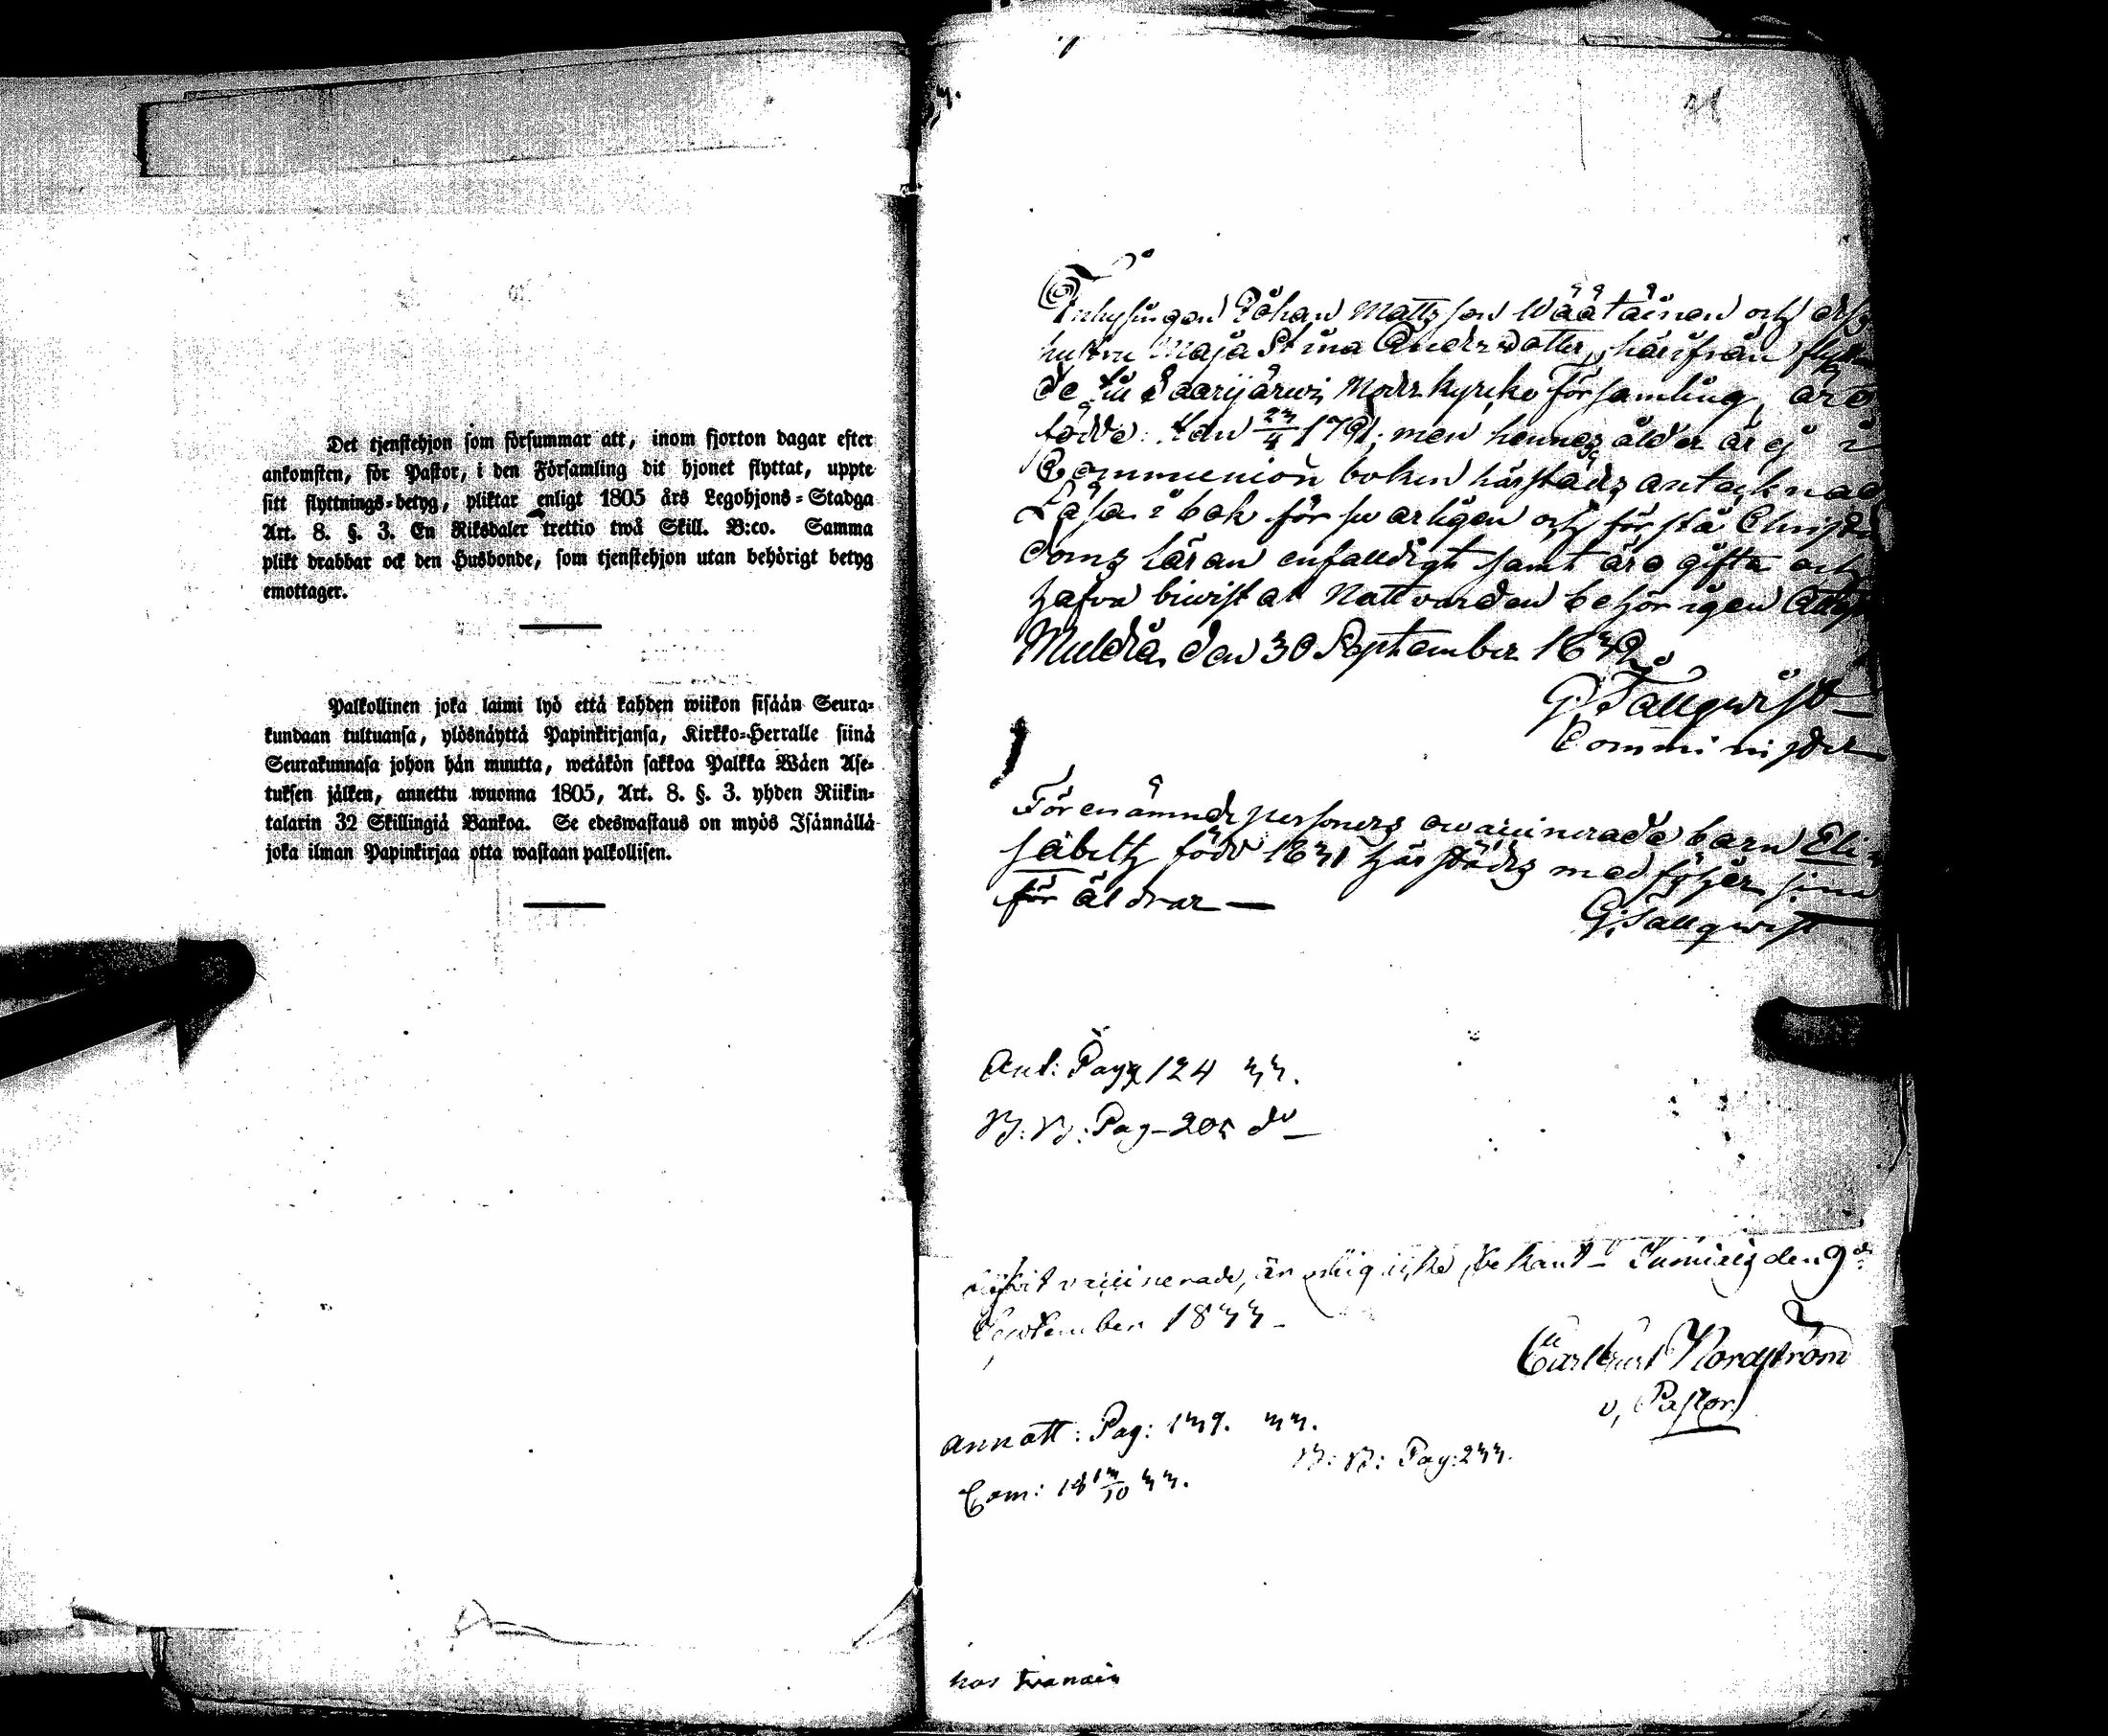 Det tjenstehjon som försummar att, inom fjorton dagar efter
ankomsten, för Pastor, i den Församling dit hjonet flyttat, uppte
sitt flyttnings-betyg, pliktar enligt 1805 års Legohjons-Stadga
Art. 8. §. 3. En Riksdaler trettio twå Skill. B:co. Samma
plikt drabbar ock den Husbonde, som tjenstehjon utan behörigt betyg
emottager.
Palkollinen joka laimi lyö että kahden wiikon sisään Seura-
kundaan tultuansa, ylösnäyttä Papinkirjansa, Kirkko-Herralle siinä
Seurakunnasa johon hän muutta, wetäkön sakkoa Palkka Wäen Ase-
tuksen jälken, annettu wuonna 1805, Art. 8. §. 3. yhden Riikin-
talarin 32 Skillingiä Bankoa. Se edeswastaus on myös Isännällä
joka ilman Papinkirjaa otta wastaan palkollisen.
Inhysingen Johan Mattsson Wäätäinen och dess
hustru Maja Stina Andersdotter, härifrån flyttan
de till Saarijärwi Moderkyrko Församling, äro
födde: han 23/4 1791; men hennes ålder är ej i
Communion boken härstädes antecknad
Läsa i bok försvarligen och förstå Christen
doms läran enfaldigt samt äro gifta och
hafva biwistat Nattvarden behörigen
den 30 September 1832
G. Tallqwist
Comminister
Förenämnde personers owaccinerade barn Eli
sabeth född 1831 härstädes medföljer sina
för äldrar —
G. Tallqwist
Ant: Pag 124 33.
B: B: Pag 205 do
vaccinerade, är mig icke bekant — den 9de
September 1833 —
Nordström
v. Pastor
Annott: Pag: 139. 33.
B: B: Pag: 233.
Com: 18 13/10 33.